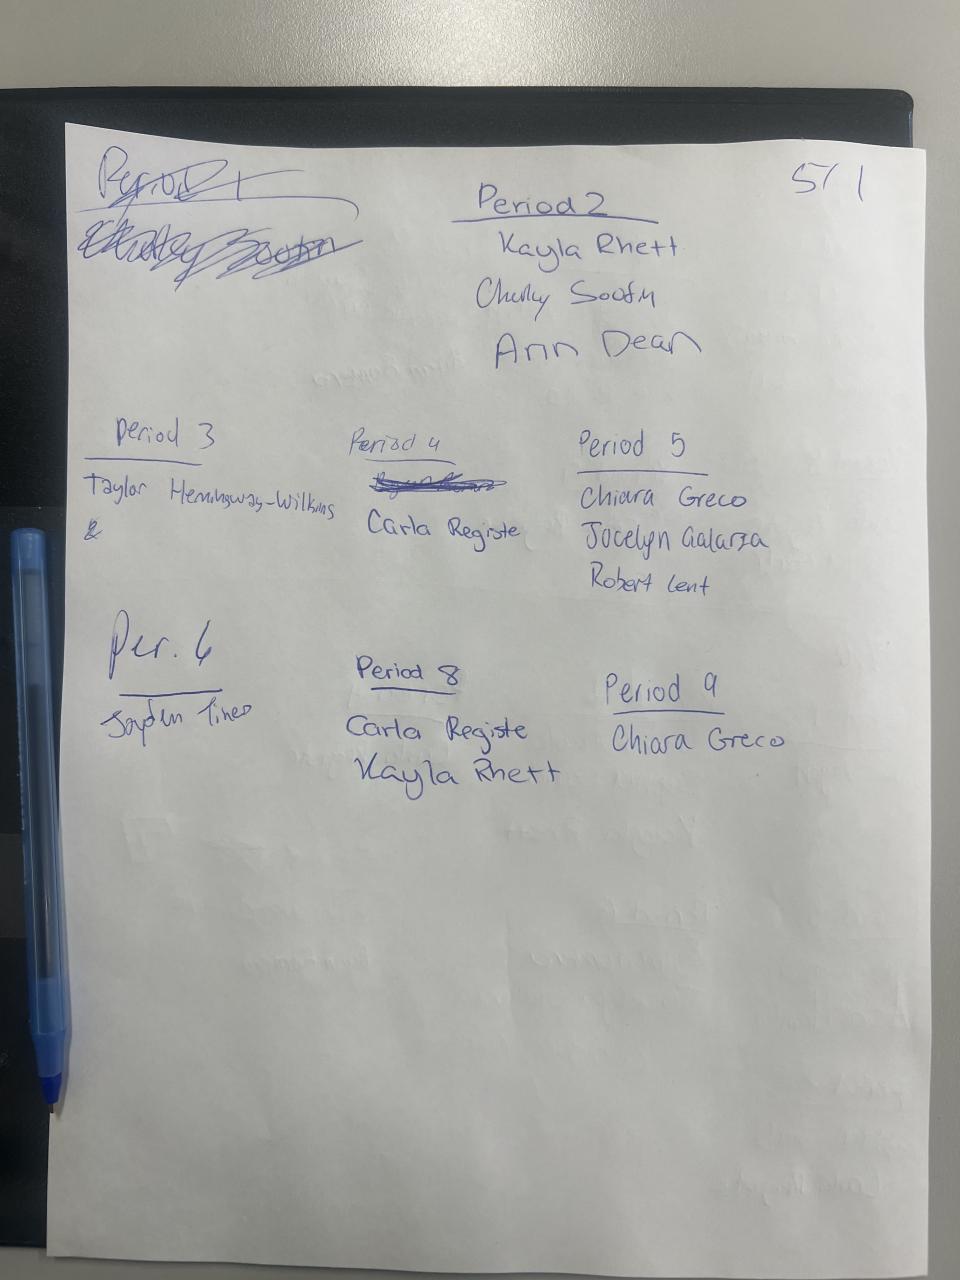 5/1
Period 1
Period 2
Kayla Rhett
Ann Dean
Period 3
Taylor Hemingway-Wilkins
&
Period 4
Carla Registe
Period 5
Chiara Greco
Jocelyn Galarza
Robert Lent
Per. 6
Jayden Tineo
Period 8
Carla Registe
Kayla Rhett
Period 9
Chiara Greco